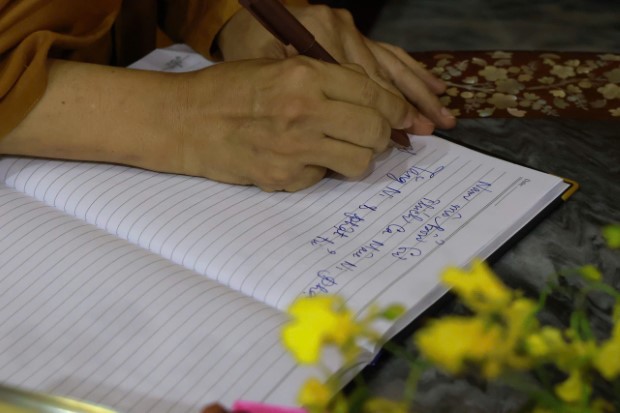 Nam mô Bổn Sư
Thích Ca Mâu Ni Phậ
Tăng Ni & phật tử